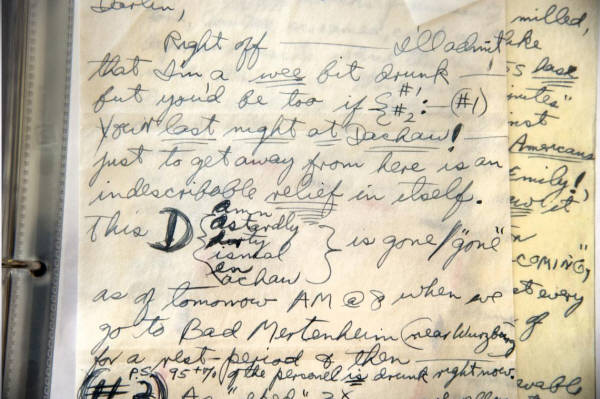 Darlin,
Right off — I'll admit
that I'm a wee bit drunk —
but you'd be too if { #1 #2 :— (#1)
Your last night at Dachau! —
just to get away from here is an
indescribable relief in itself.
This D { amn
astardly
irty
ismal
en
achau } is gone / "gone"
as of tomorrow AM @ 8 when we
go to Bad Mertenheim (near Wurzburg)
for a rest-period & then —
P.S. 95+% of the personel is drunk right now.
(#2)
milled,
ake
dash
nutes"
nst
Americans
Emily!)
it
COMING,
st every
of